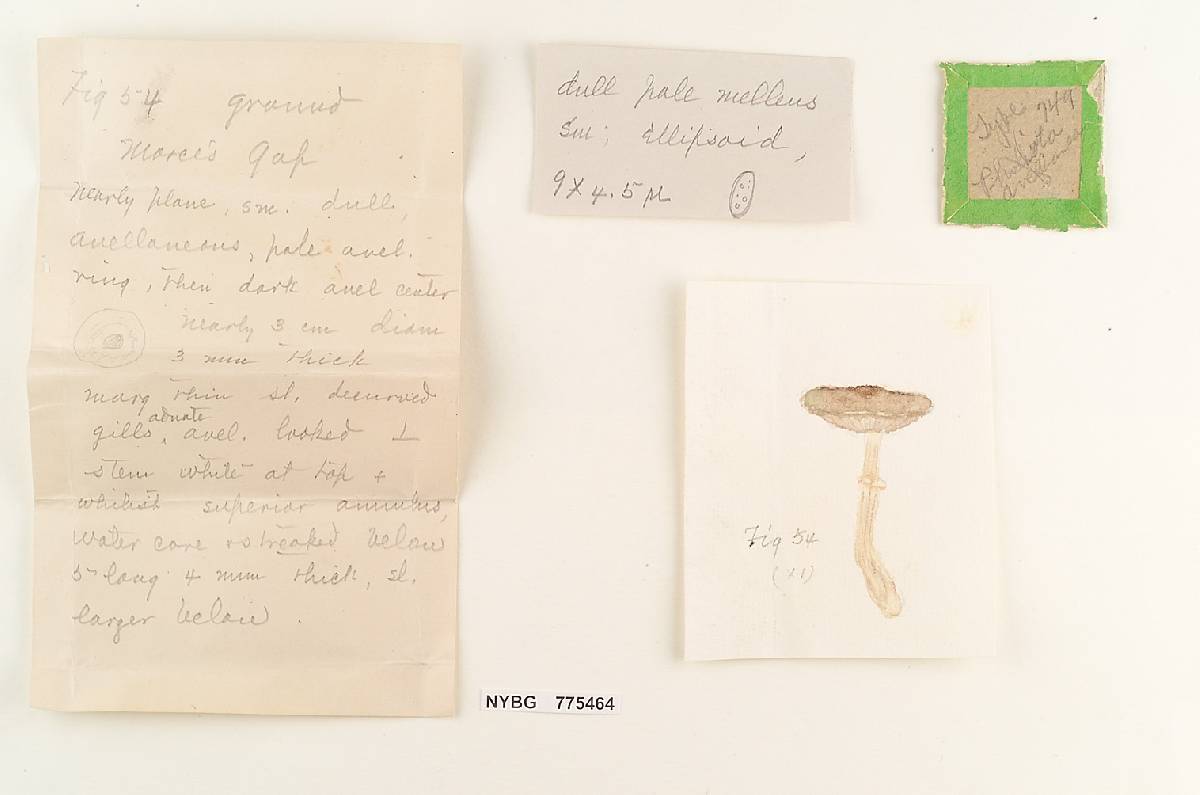 Fig 54 ground
Morce's Gap
nearly plane, sm. dull,
avellaneous, pale avel.
ring, then dark avel center
nearly 3 cm diam
3 mm thick
marg thin sl. decurved
adnate
gills, avel. looked ⊥
stem white at top +
whitish superior annulus,
water core + streaked below
5 long 4 mm thick, sl.
larger below.
dull pale melleus
sm; ellipsoid,
9 X 4.5 µ
Type 749
Pholiota
Fig 54
(x1)
NYBG 775464